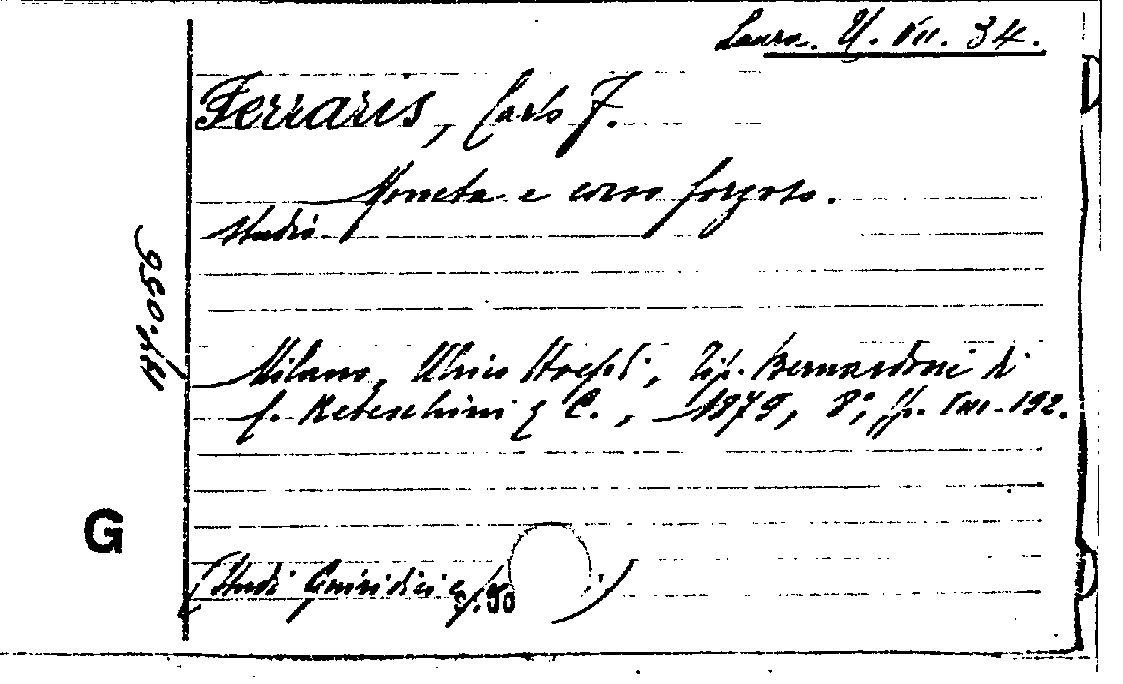 Laura. U. VII. 34.
Ferraris, Carlo F.
Moneta e corso forzoso.
Studio
Milano, Ulrico Hoepli, Tip. Bernardoni di
C. Rebeschini e C., 1879, 8°, pp. VIII-192.
G
(Studi Giuridici e )